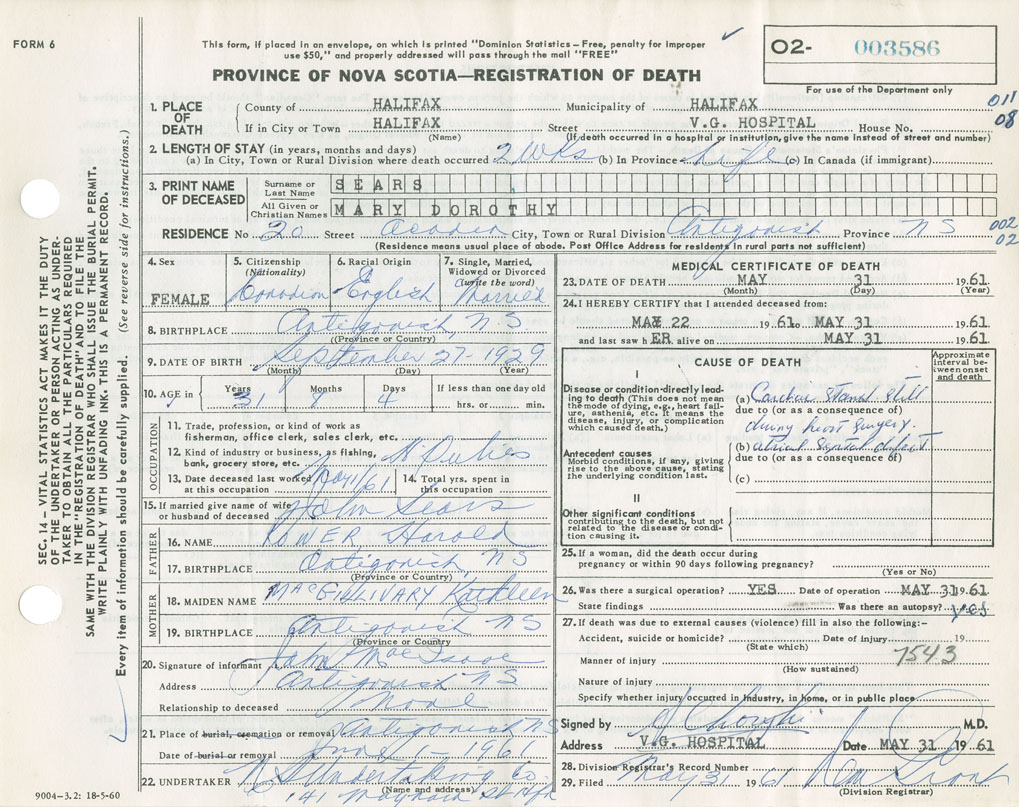 FORM 6
This form, if placed in an envelope, on which is printed "Dominion Statistics – Free, penalty for improper
use $50," and properly addressed will pass through the mail "FREE"
PROVINCE OF NOVA SCOTIA—REGISTRATION OF DEATH
O2- 003586
For use of the Department only
SEC. 14 – VITAL STATISTICS ACT MAKES IT THE DUTY
OF THE UNDERTAKER OR PERSON ACTING AS UNDER-
TAKER TO OBTAIN ALL THE PARTICULARS REQUIRED
IN THE "REGISTRATION OF DEATH" AND TO FILE THE
SAME WITH THE DIVISION REGISTRAR WHO SHALL ISSUE THE BURIAL PERMIT.
WRITE PLAINLY WITH UNFADING INK. THIS IS A PERMANENT RECORD.
Every item of information should be carefully supplied. (See reverse side for instructions.)
1. PLACE OF DEATH
County of HALIFAX Municipality of HALIFAX 011
If in City or Town HALIFAX Street V.G. HOSPITAL House No. 08
(Name) (If death occurred in a hospital or institution, give the name instead of street and number)
2. LENGTH OF STAY (in years, months and days)
(a) In City, Town or Rural Division where death occurred 2 Wks (b) In Province Life (c) In Canada (if immigrant)
3. PRINT NAME OF DECEASED
Surname or Last Name SEARS
All Given or Christian Names MARY DOROTHY
RESIDENCE No 20 Street Acadia City, Town or Rural Division Antigonish Province NS 002
(Residence means usual place of abode. Post Office Address for residents in rural parts not sufficient) 02
4. Sex FEMALE
5. Citizenship (Nationality) Canadian
6. Racial Origin English
7. Single, Married, Widowed or Divorced (write the word) Married
8. BIRTHPLACE Antigonish, N.S
(Province or Country)
9. DATE OF BIRTH September 27 - 1929
(Month) (Day) (Year)
10. AGE in Years 31 Months 8 Days 4 If less than one day old hrs. or min.
OCCUPATION
11. Trade, profession, or kind of work as
fisherman, office clerk, sales clerk, etc.
12. Kind of industry or business, as fishing,
bank, grocery store, etc. H Duties
13. Date deceased last worked at this occupation
14. Total yrs. spent in this occupation
15. If married give name of wife or husband of deceased John Sears
FATHER
16. NAME Harold
17. BIRTHPLACE Antigonish, NS
(Province or Country)
MOTHER
18. MAIDEN NAME MacGILLIVARY Kathleen
19. BIRTHPLACE Antigonish NS
(Province or Country
20. Signature of informant John MacIsaac
Address Antigonish NS
Relationship to deceased None
21. Place of burial, cremation or removal Antigonish NS
Date of burial or removal June 1 - 1961
22. UNDERTAKER NS Undertaking Co.
(Name and address)
141 Maynard St Hfx
9004-3.2: 18-5-60
MEDICAL CERTIFICATE OF DEATH
23. DATE OF DEATH MAY 31 1961
(Month) (Day) (Year)
24. I HEREBY CERTIFY that I attended deceased from:
MAY 22 1961 to MAY 31 1961
and last saw h ER alive on MAY 31 1961
CAUSE OF DEATH
Approximate interval between onset and death
I
Disease or condition directly lead-
ing to death (This does not mean
the mode of dying, e.g., heart fail-
ure, asthenia, etc. It means the
disease, injury, or complication
which caused death.)
(a) Cardiac Stand Still
due to (or as a consequence of)
during heart surgery.
Antecedent causes
Morbid conditions, if any, giving
rise to the above cause, stating
the underlying condition last.
(b) Atrial Septal defect
due to (or as a consequence of)
(c)
II
Other significant conditions
contributing to the death, but not
related to the disease or condi-
tion causing it.
25. If a woman, did the death occur during
pregnancy or within 90 days following pregnancy?
(Yes or No)
26. Was there a surgical operation? YES Date of operation MAY 31 1961
State findings Was there an autopsy? yes
27. If death was due to external causes (violence) fill in also the following:-
Accident, suicide or homicide? Date of injury 19
(State which)
7543
Manner of injury
(How sustained)
Nature of injury
Specify whether injury occurred in Industry, in home, or in public place
Signed by M.D.
Address V.G. HOSPITAL Date MAY 31 1961
28. Division Registrar's Record Number
29. Filed May 31 1961
(Division Registrar)